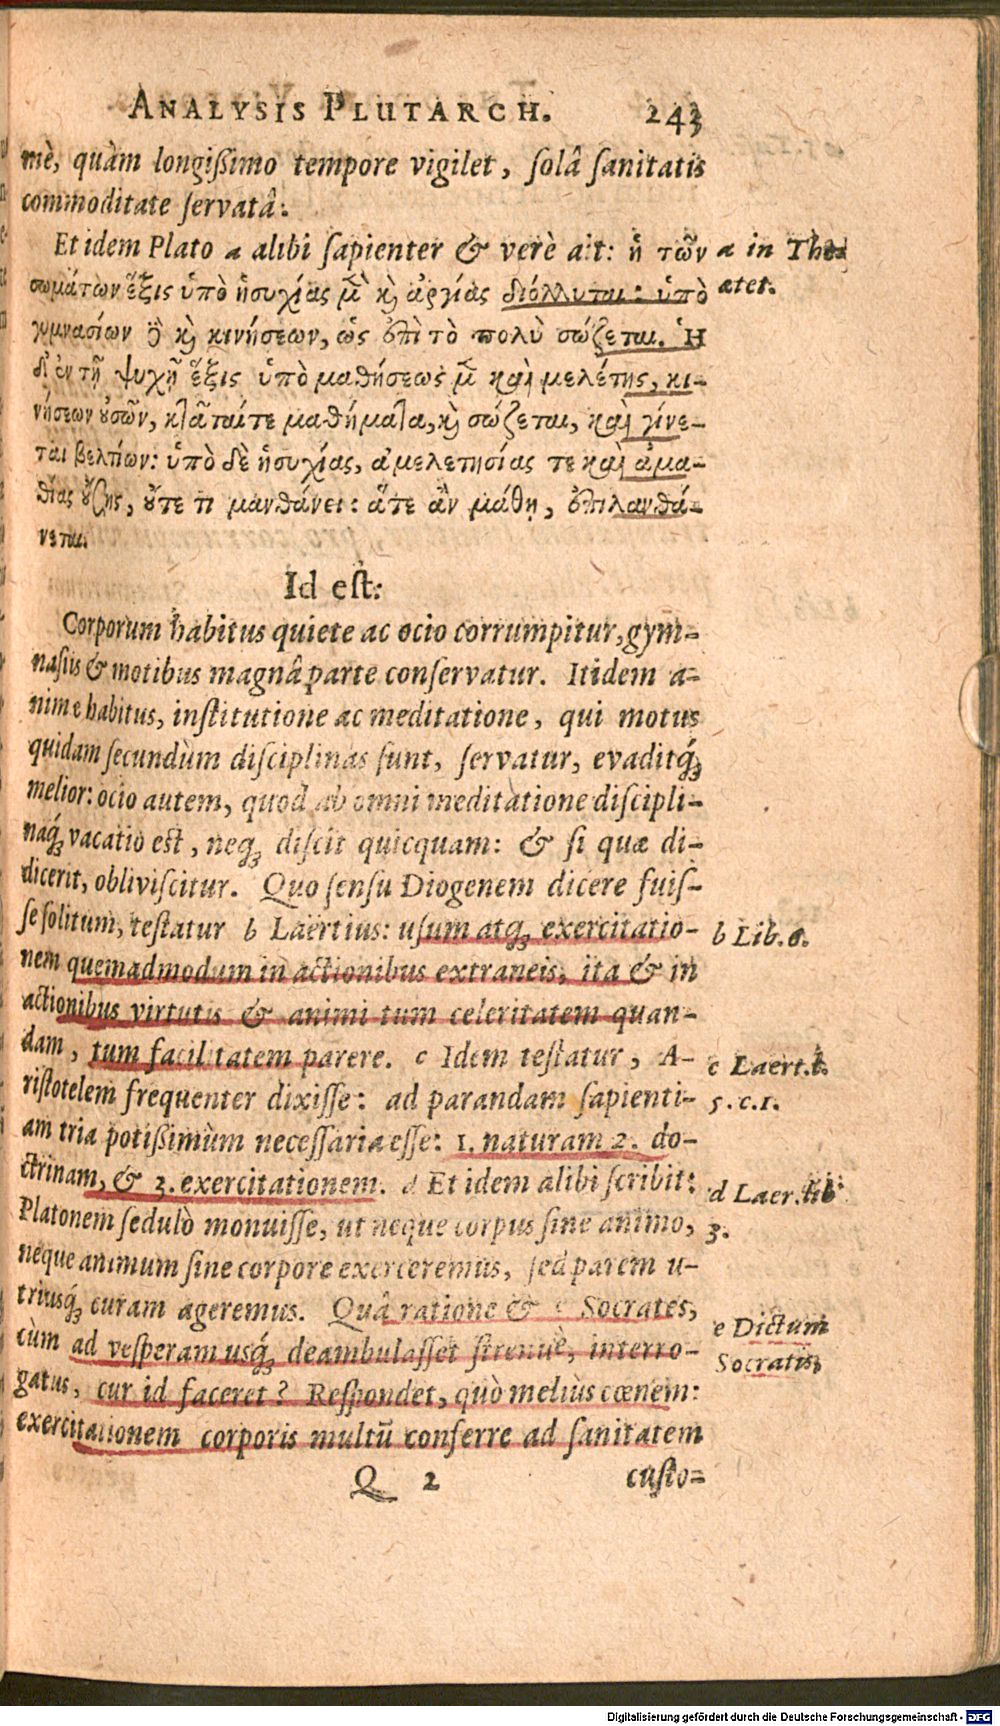 ANALYSIS PLUTARCH. 243
mè, quàm longißimo tempore vigilet, ſolâ ſanitatis
commoditate ſervatâ:
Et idem Plato a alibi ſapienter & verè ait: ἡ τῶν
a in Theæ
atet.
σωμάτων ἕξις ὑπὸ ἡσυχίας μ̃ ϗ ἀργίας διόλλυται: ὑπὸ
γυμνασίων ϗ κινήσεων, ὡς ἐπὶ τὸ πολὺ σώζεται. Ἡ
δ' ἐν τῇ ψυχῇ ἕξις ὑπὸ μαθήσεως μ̃ καὶ μελέτης, κι-
νήσεων οὐσῶν, κτᾶταίτε μαθήματα, ϗ σώζεται, καὶ γίνε-
ται βελτίων: ὑπὸ δὲ ἡσυχίας, ἀμελετησίας τε καὶ ἀμα-
θίας οὔσης, οὔτε τι μανθάνει: ἅτε ἂν μάθῃ, ἐπιλανθά-
νεται.
Id eſt:
Corporum habitus quiete ac ocio corrumpitur, gym-
naſiis & motibus magnâ parte conſervatur. Itidem a-
nime habitus, inſtitutione ac meditatione, qui motus
quidam ſecundùm diſciplinas ſunt, ſervatur, evaditq́ꝫ
melior: ocio autem, quod ab omni meditatione diſcipli-
naq́ꝫ vacatio eſt, neqꝫ diſcit quicquam: & ſi quæ di-
dicerit, obliviſcitur. Quo ſenſu Diogenem dicere fuiſ-
ſe ſolitum, teſtatur b Laërtius: uſum atqꝫ exercitatio-
b Lib. 6.
nem quemadmodum in actionibus extraneis, ita & in
actionibus virtutis & animi tum celeritatem quan-
dam, tum facilitatem parere. c Idem teſtatur, A-
c Laert. l.
riſtotelem frequenter dixiſſe: ad parandam ſapienti-
5. c. 1.
am tria potißimùm neceſſaria eſſe: 1. naturam 2. do-
ctrinam, & 3. exercitationem. d Et idem alibi ſcribit:
d Laer. lib
Platonem ſedulò monuiſſe, ut neque corpus ſine animo,
3.
neque animum ſine corpore exerceremus, ſed parem u-
triusq́ꝫ curam ageremus. Quâ ratione & e Socrates,
e Dictum
cùm ad veſperam usq́ꝫ deambulaſſet ſtrenuè, interro-
Socratis,
gatus, cur id faceret? Reſpondet, quò meliùs cœnem:
exercitationem corporis multū conferre ad ſanitatem
Q 2 cuſto-
Digitalisierung gefördert durch die Deutsche Forschungsgemeinschaft - DFG